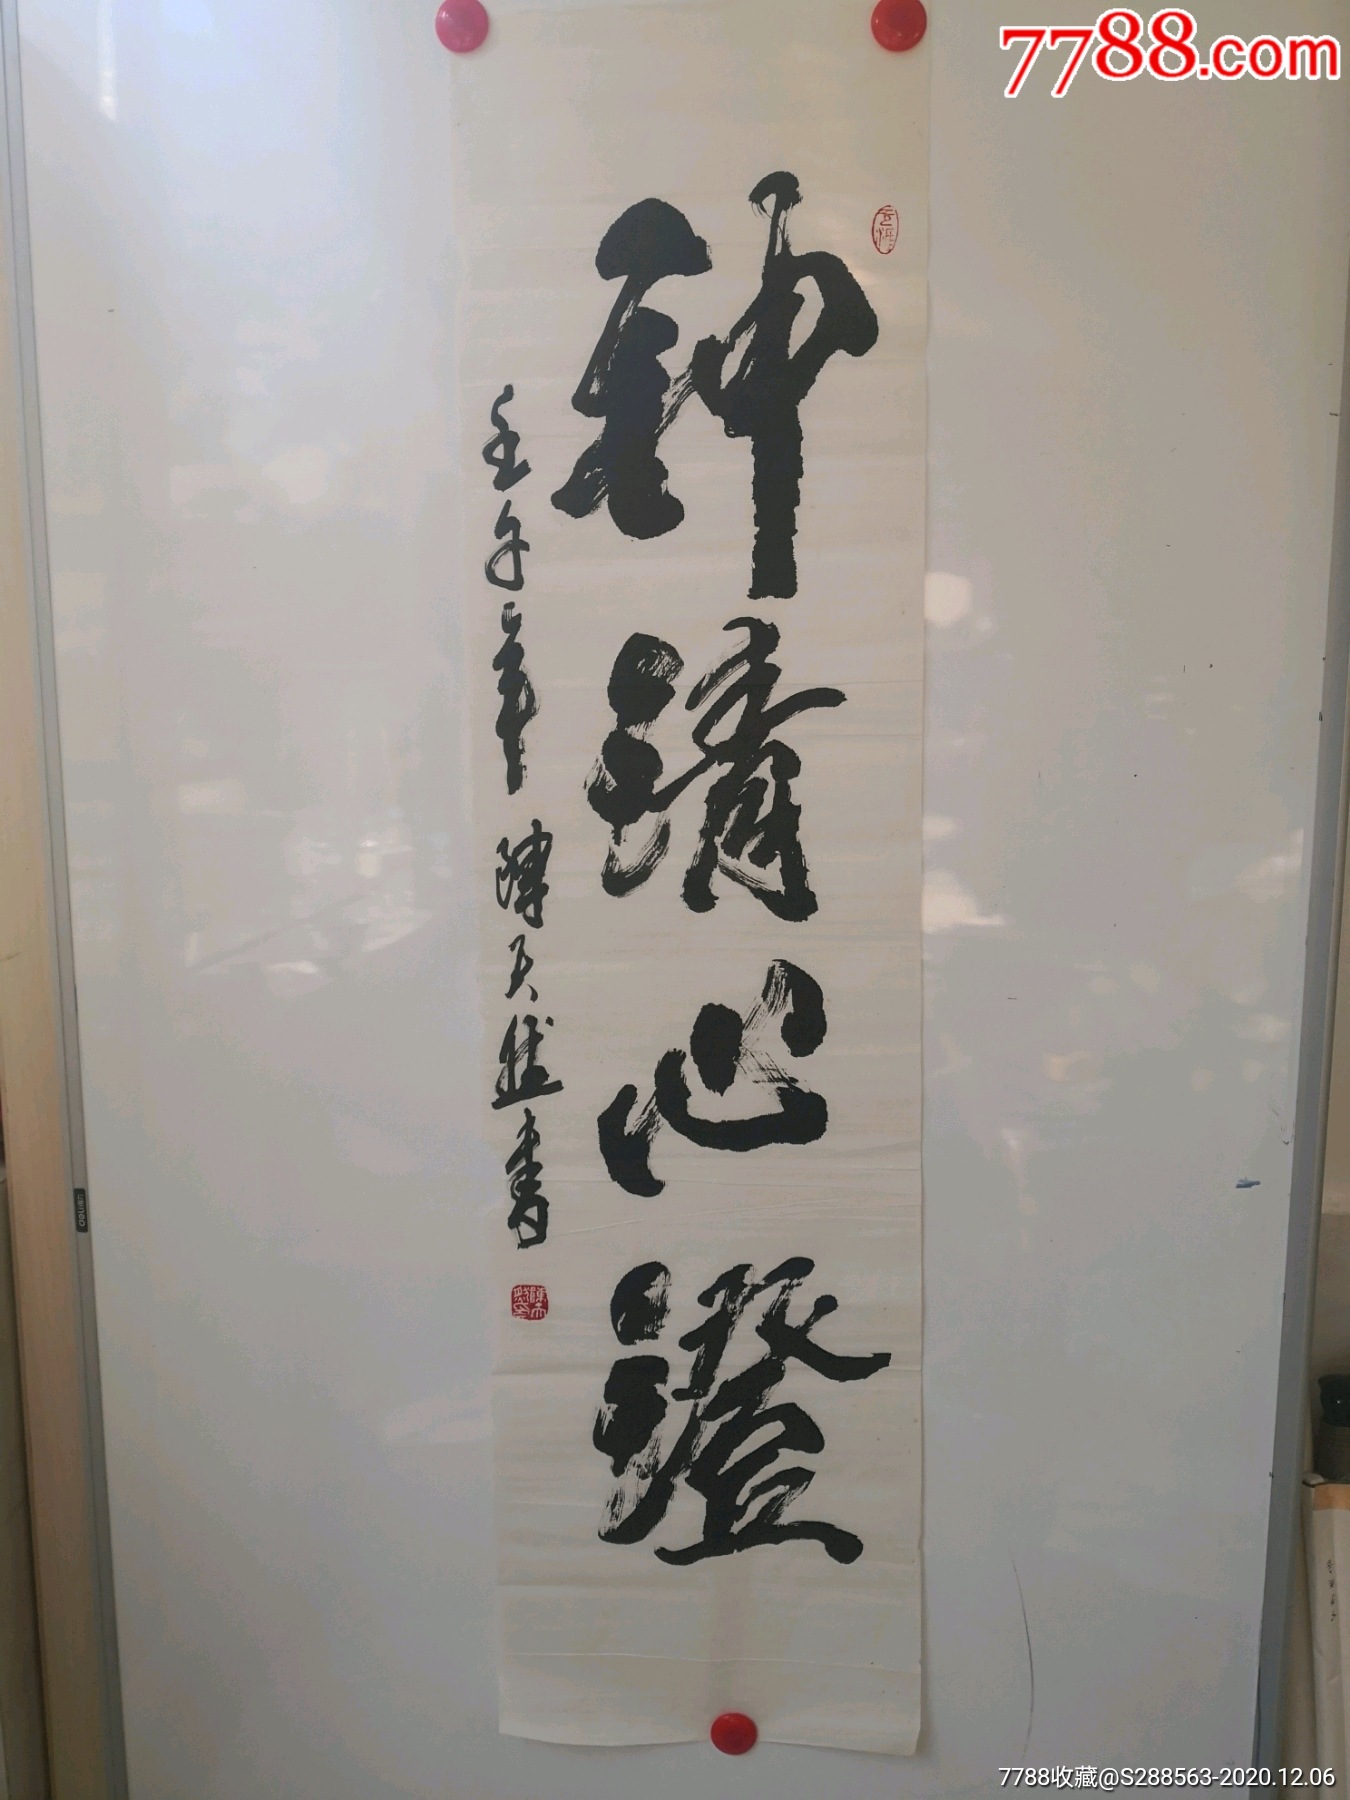 7788.com
神清心澄
壬午年 陈天然書
deli得力
7788收藏@S288563-2020.12.06